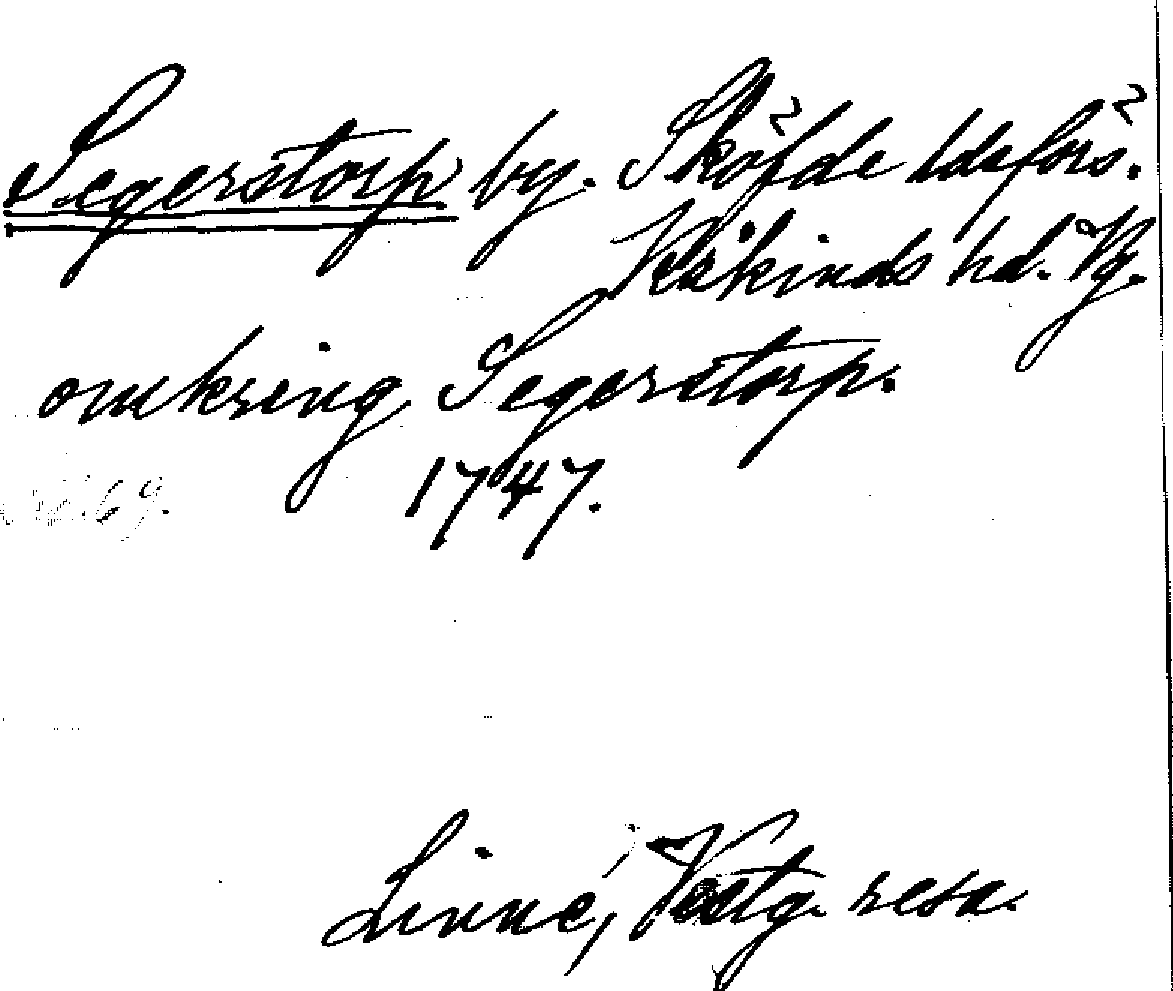 Segerstorp by. Sköfde ldsförs.
Kåkinds hd. Vg.
omkring Segerstorp.
1747.
69.
Linné, Vestg. resa.